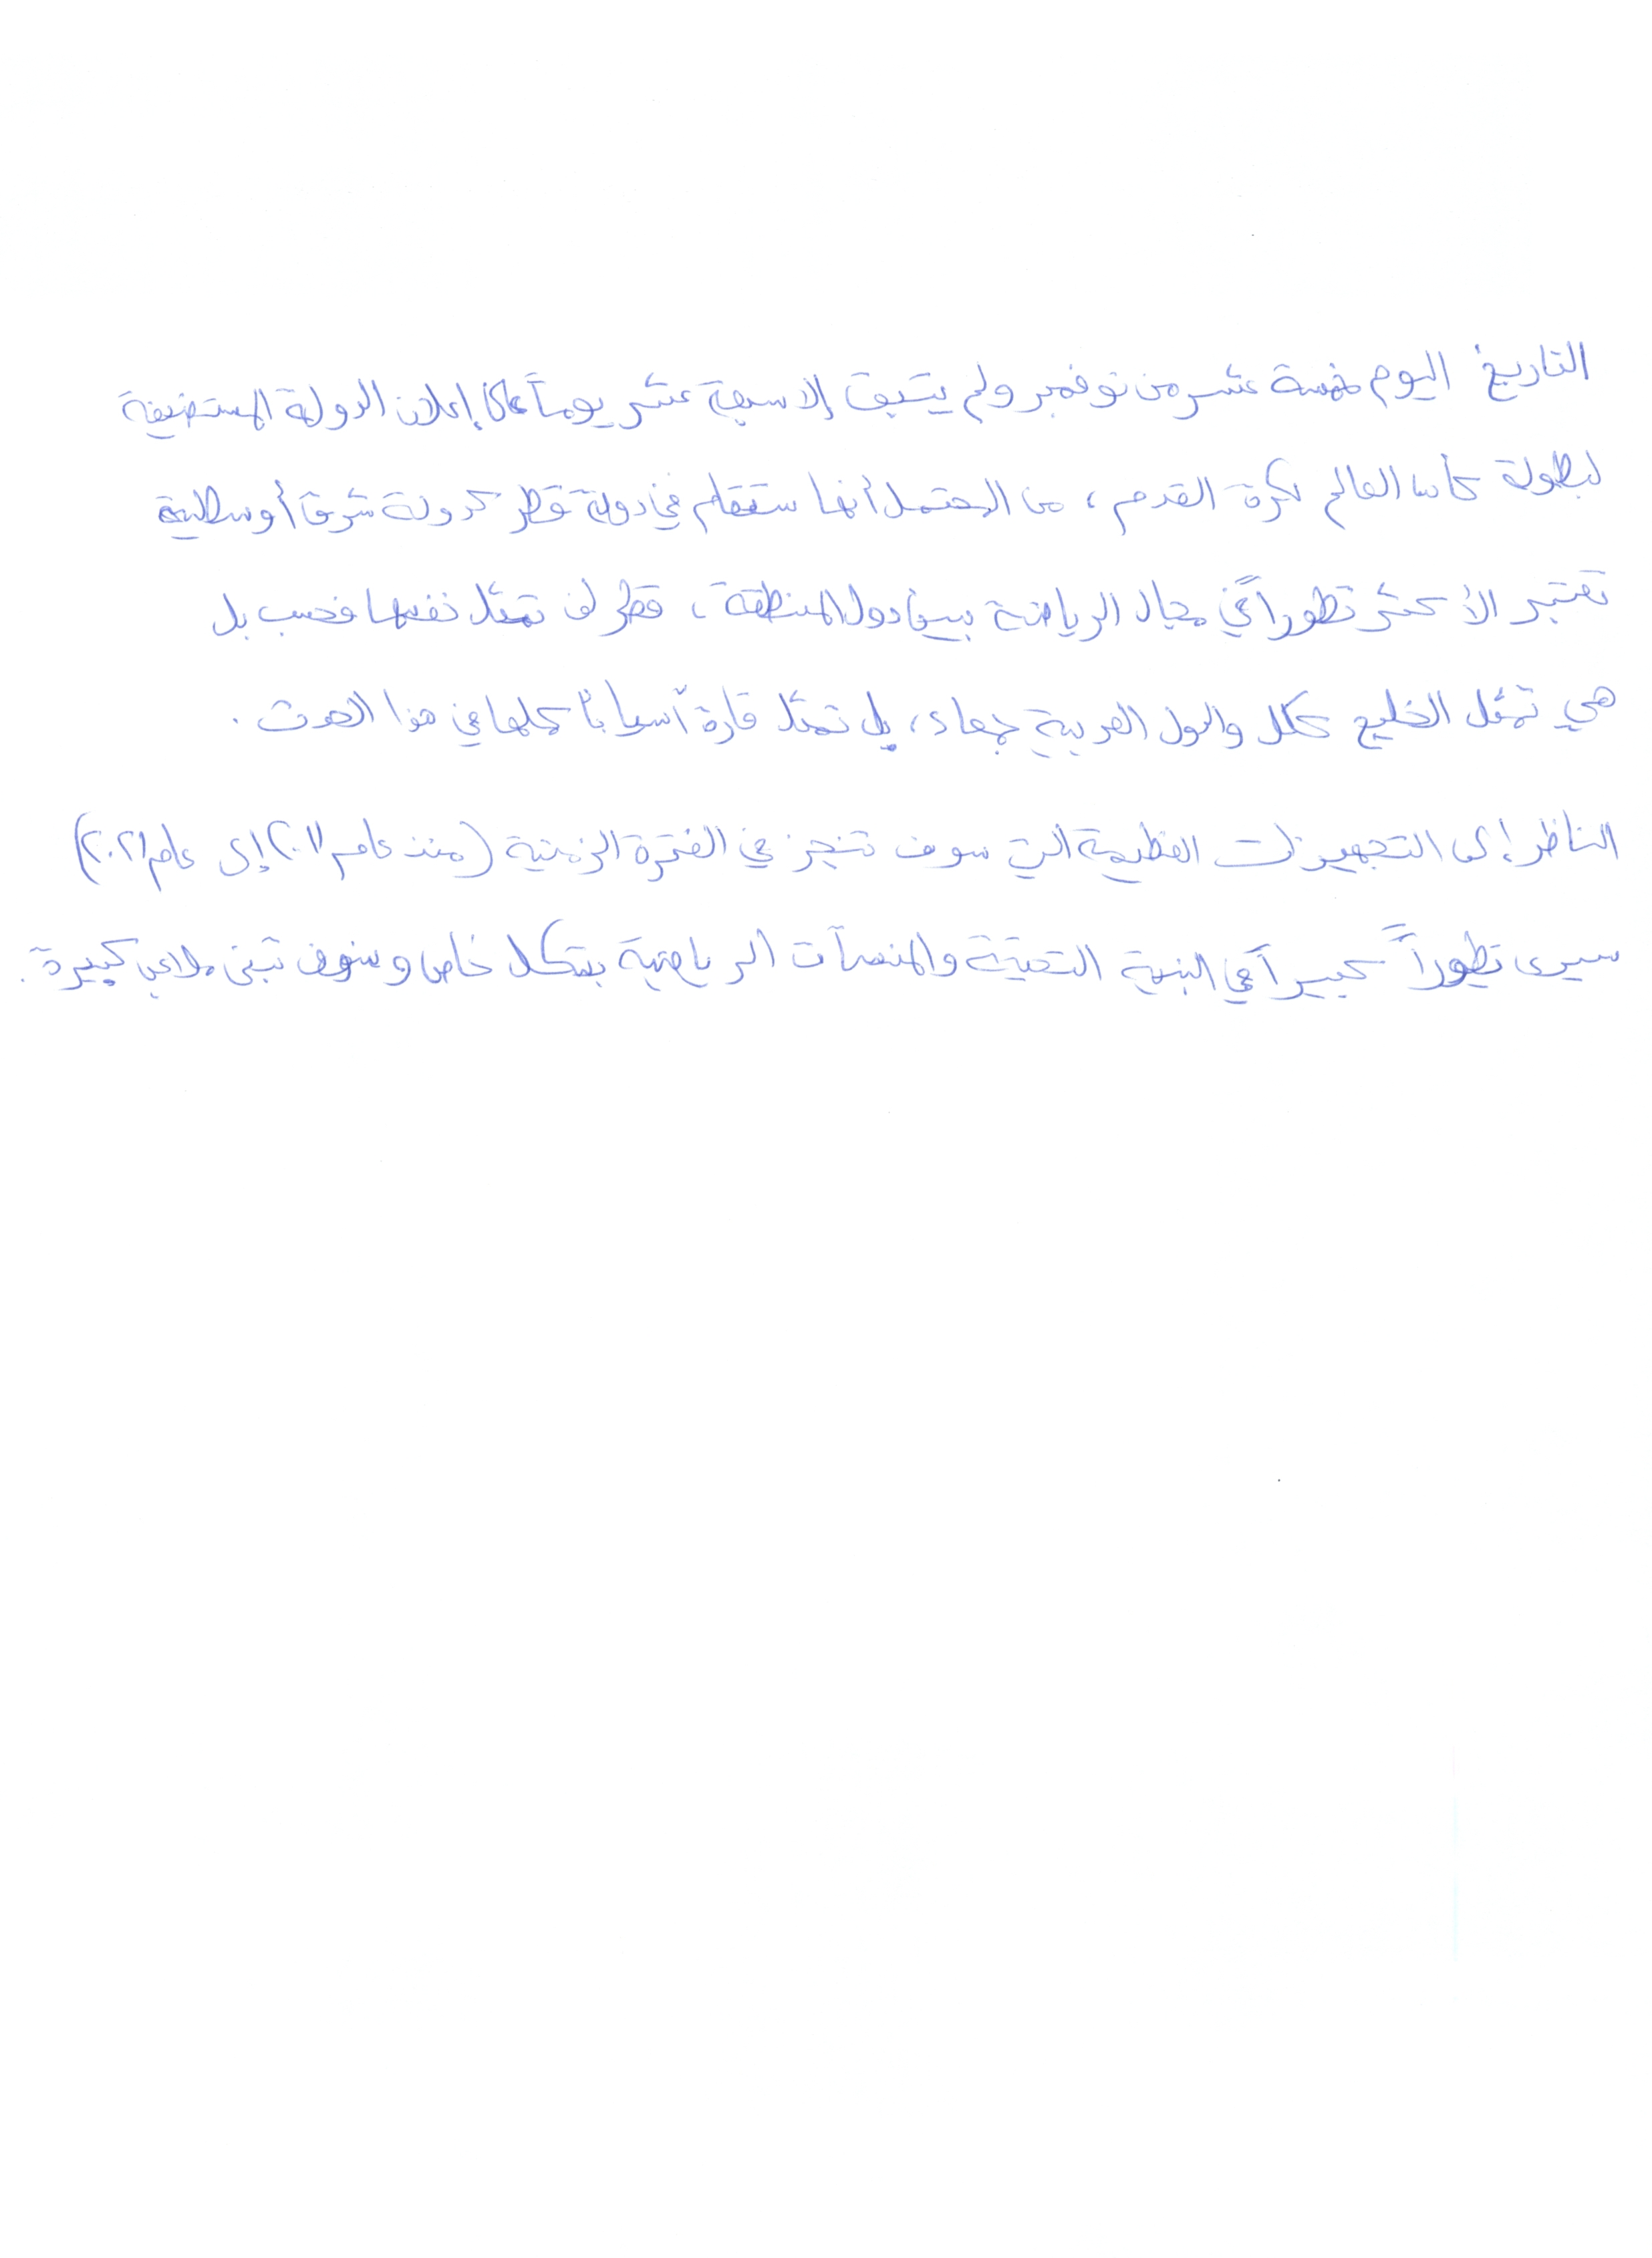 التاريخ اليوم خمسة عشر من نوفمبر ولم يتبق إلا سبعة عشر يوماً على إعلان الدولة المستضيفة
لبطولة كأس العالم لكرة القدم، من المحتمل أنها ستقام في دولة قطر كدولة شرق أوسطية
تعتبر الأكثر تطوراً في مجال الرياضة بين دول المنطقة، قطر لن تمثل نفسها فحسب بل
هي تمثل الخليج ككل والدول العربية جمعاء، بل تمثل قارة آسيا بأكملها في هذا الحدث.
الناظر إلى التجهيزات العظيمة التي سوف تنجز في الفترة الزمنية (منذ عام ٢٠١١ إلى عام ٢٠٢١)
سيرى تطوراً كبيراً في البنية التحتية والمنشآت الرياضية بشكل خاص وسوف تبنى ملاعب كبيرة.